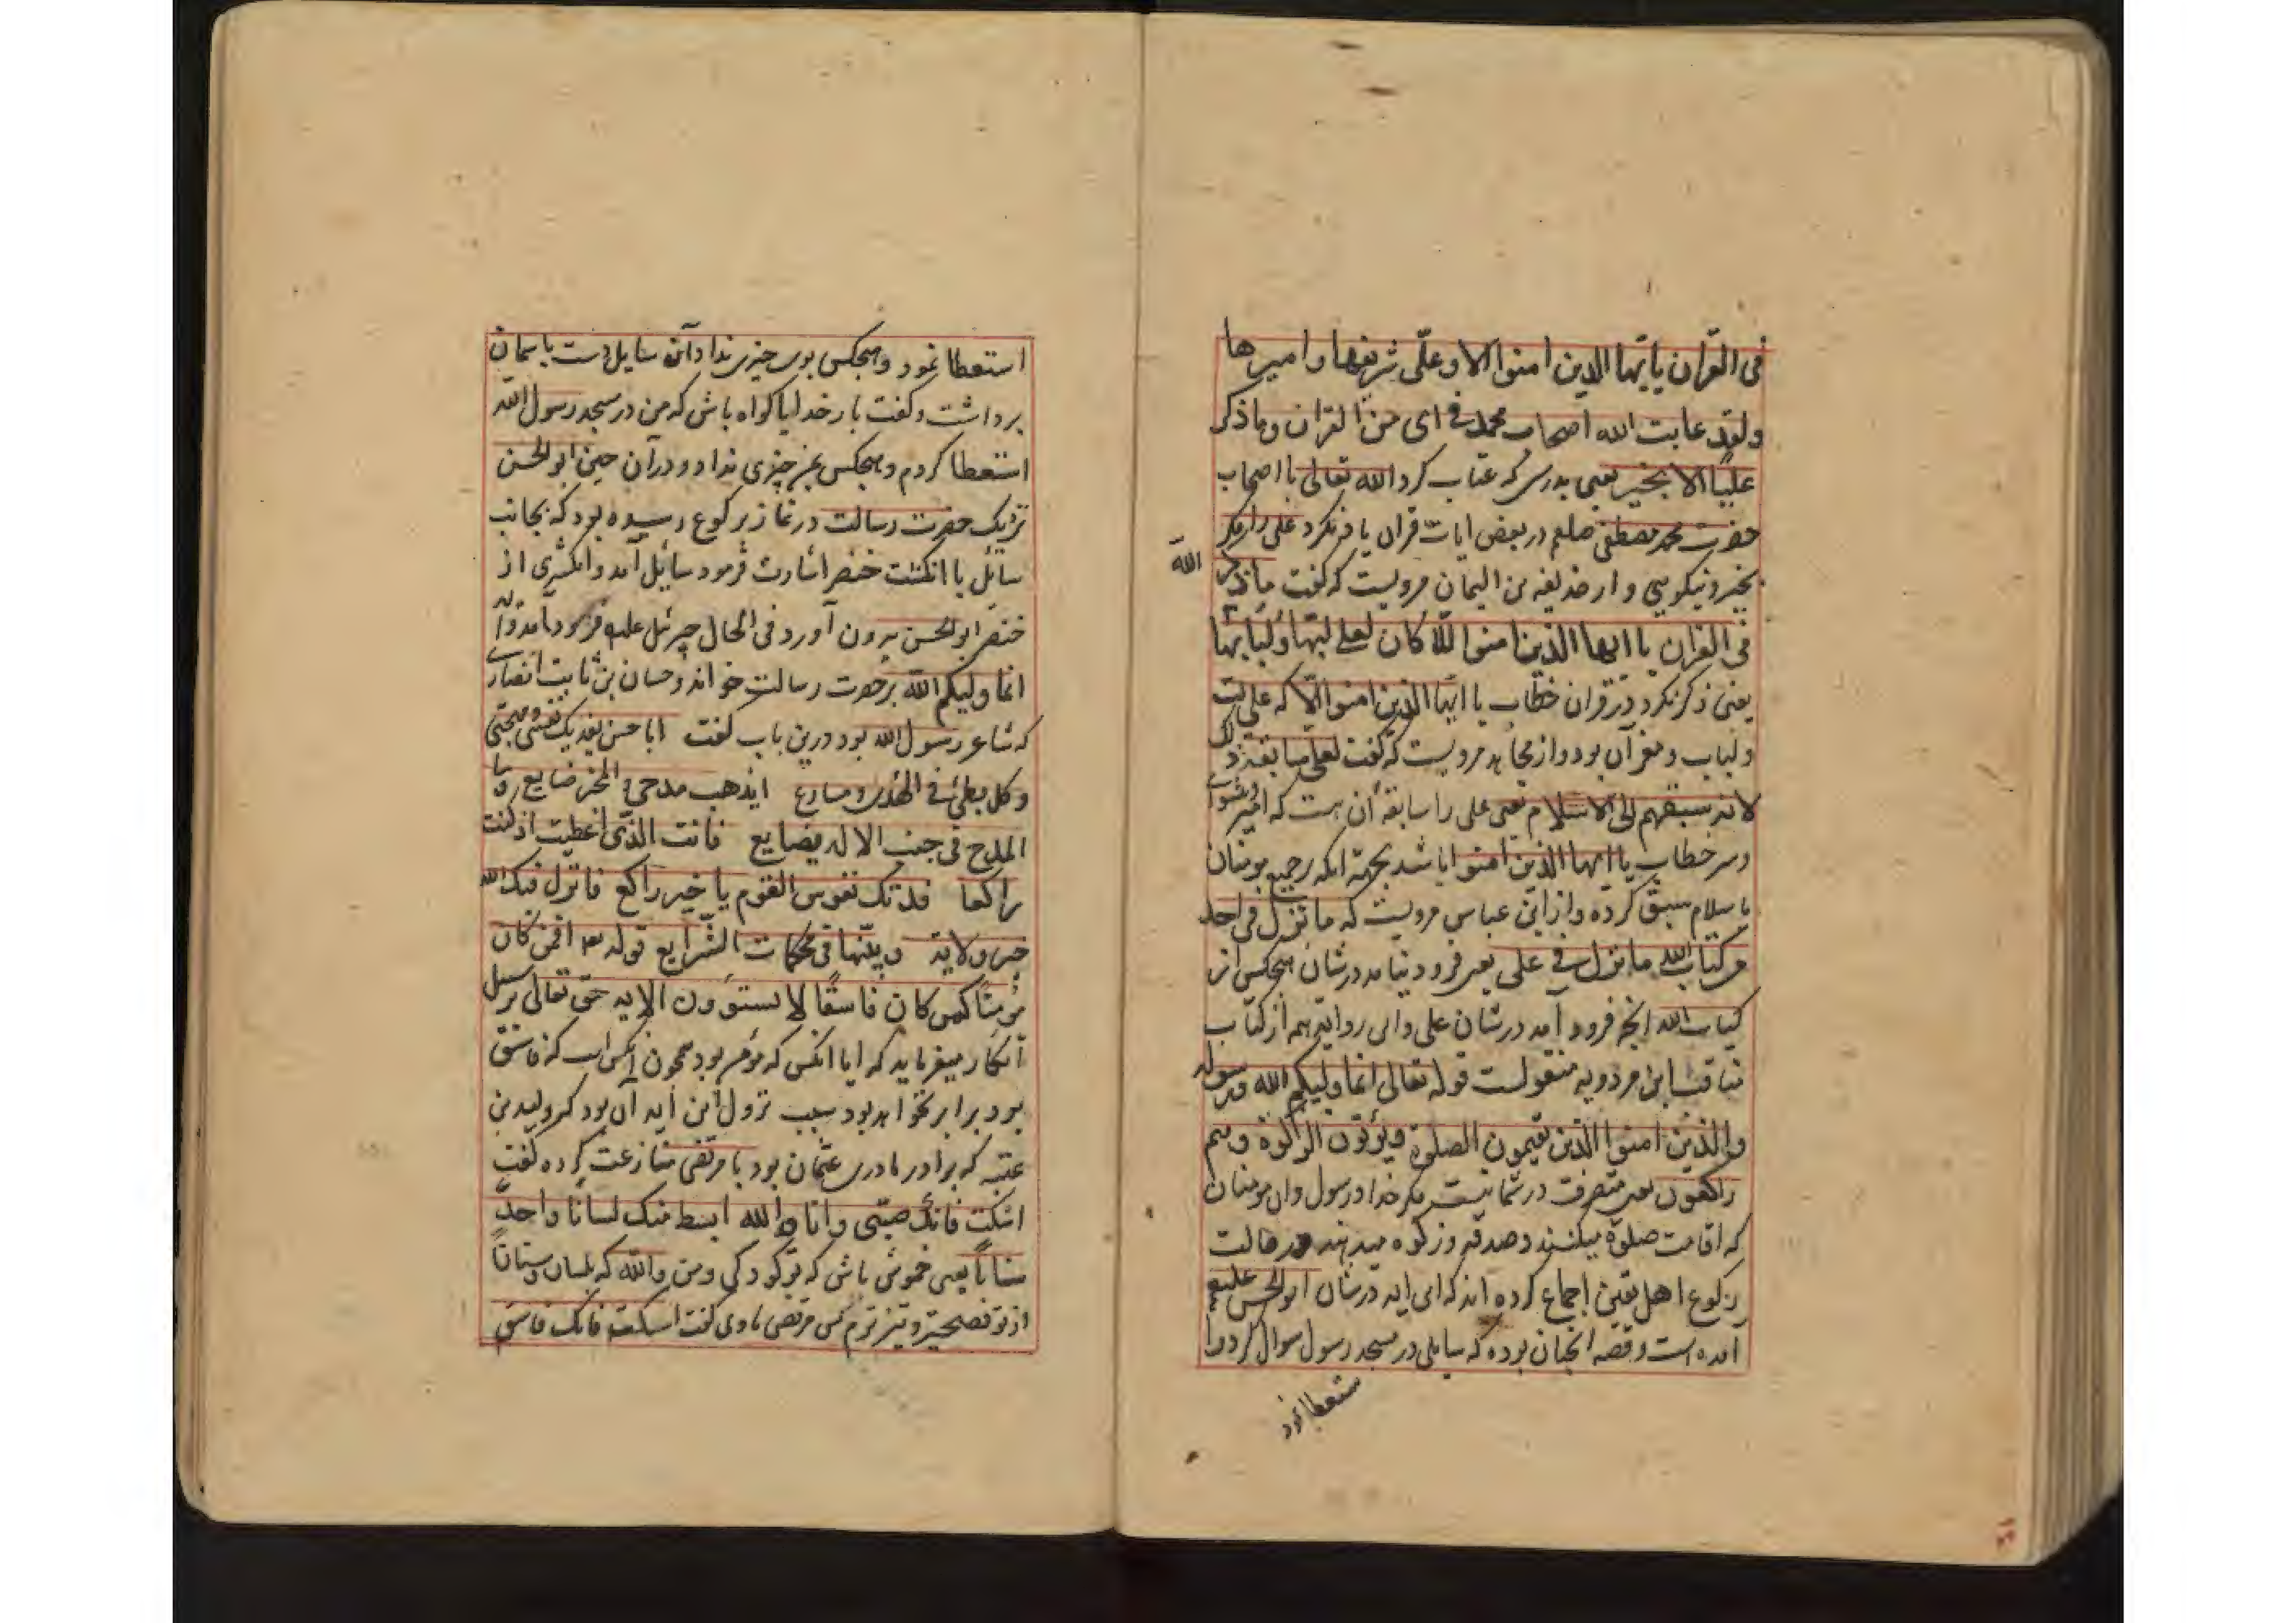 فی القرآن یا ایها الذین امنوا الا و علی شریفها و امیرها
و لقد عاتب الله اصحاب محمد فی ای من القرآن و ما ذکر
علیا الا بخیر یعنی بدرستی که عتاب کرد الله تعالی با اصحاب
حضرت محمد مصطفی صلعم در بعض ایات قران یاد نکرد علی را مکر
بخیر و نیکویی و از حذیفه بن الیمان مرویست که کفت ما ذکر
الله
فی القران یا ایها الذین امنوا الا کان لعلی لبها و لبابها
یعنی ذکر نکرد در قران خطاب یا ایها الذین امنوا الا که علی لب
و لباب و مغز آن بود و از مجاهد مرویست که کفت لعلی سابقة ذلک
لانه سبقهم الی الاسلام یعنی علی را سابقه آن هست که امیر
و سر خطاب یا ایها الذین امنوا باشد بجهة انکه بر جمیع مومنان
باسلام سبق کرده و از ابن عباس مرویست که ما نزل فی احد
من کتاب الله ما نزل فی علی یعنی فرود نیامد در شان هیچکس از
کتاب الله انچه فرود آمد در شان علی و این روایة هم از کتاب
مناقب ابن مردویه منقولست قوله تعالی انما ولیکم الله و رسوله
والذین امنوا الذین یقیمون الصلوة و یؤتون الزکوة و هم
راکعون یعنی متصرف در شما نیست مکر خدا و رسول و ان مومنان
که اقامت صلوة میکنند و صدقه و زکوه میدهند در حالت
رکوع اهل یقین اجماع کرده اند که این ایه در شان ابو الحسن علیه
آمده است و قصه انچنان بوده که سایلی در مسجد رسول سوال کرد و ا
ستعطا نمود
استعطا نمود و هیچکس بوی چیزی نداد آن سایل دست باسمان
برداشت و کفت بار خدایا کواه باش که من در مسجد رسول الله
استعطا کردم و هیچکس بمن چیزی نداد و در آن حین ابو الحسن
نزدیک حضرت رسالت در نماز برکوع رسیده بود که بجانب
سائل با انکشت خنصر اشارت فرمود سایل آمد و انکشتری از
خنصر ابو الحسن بیرون آورد فی الحال جبرئیل علیه فرود آمد و آیه
انما ولیکم الله بر حضرت رسالت خواند و حسان بن ثابت انصاری
که شاعر رسول الله بود درین باب کفت ابا حسن تفدیک نفسی و مهجتی
و کل بطئ فی الهدی و مسارع ایذهب مدحی المخبر ضایع
المدح فی جنب الاله بضایع فانت الذی اعطیت اذ کنت
راکعا فدتک نفوس القوم یا خیر راکع فانزل فیک الله
خیر ولایة و بینها فی محکمات الشرایع قوله افمن کان
مؤمنا کمن کان فاسقا لا یستوؤن الایه حق تعالی بر سبیل
انکار میفرماید که ایا انکس که مؤمن بود همچون انکس است که فاسق
بود برابر نخواهد بود سبب نزول این ایه آن بود که ولید بن
عتبه که برادر مادری عثمان بود با مرتضی منازعت کرده کفت
اسکت فانک صبی و انا والله ابسط منک لسانا و احد
سنانا یعنی خموش باش که تو کودکی و من والله که بلسان و سنان
از تو فصیحتر و تیزترم پس مرتضی با وی کفت اسکت فانک فاسق